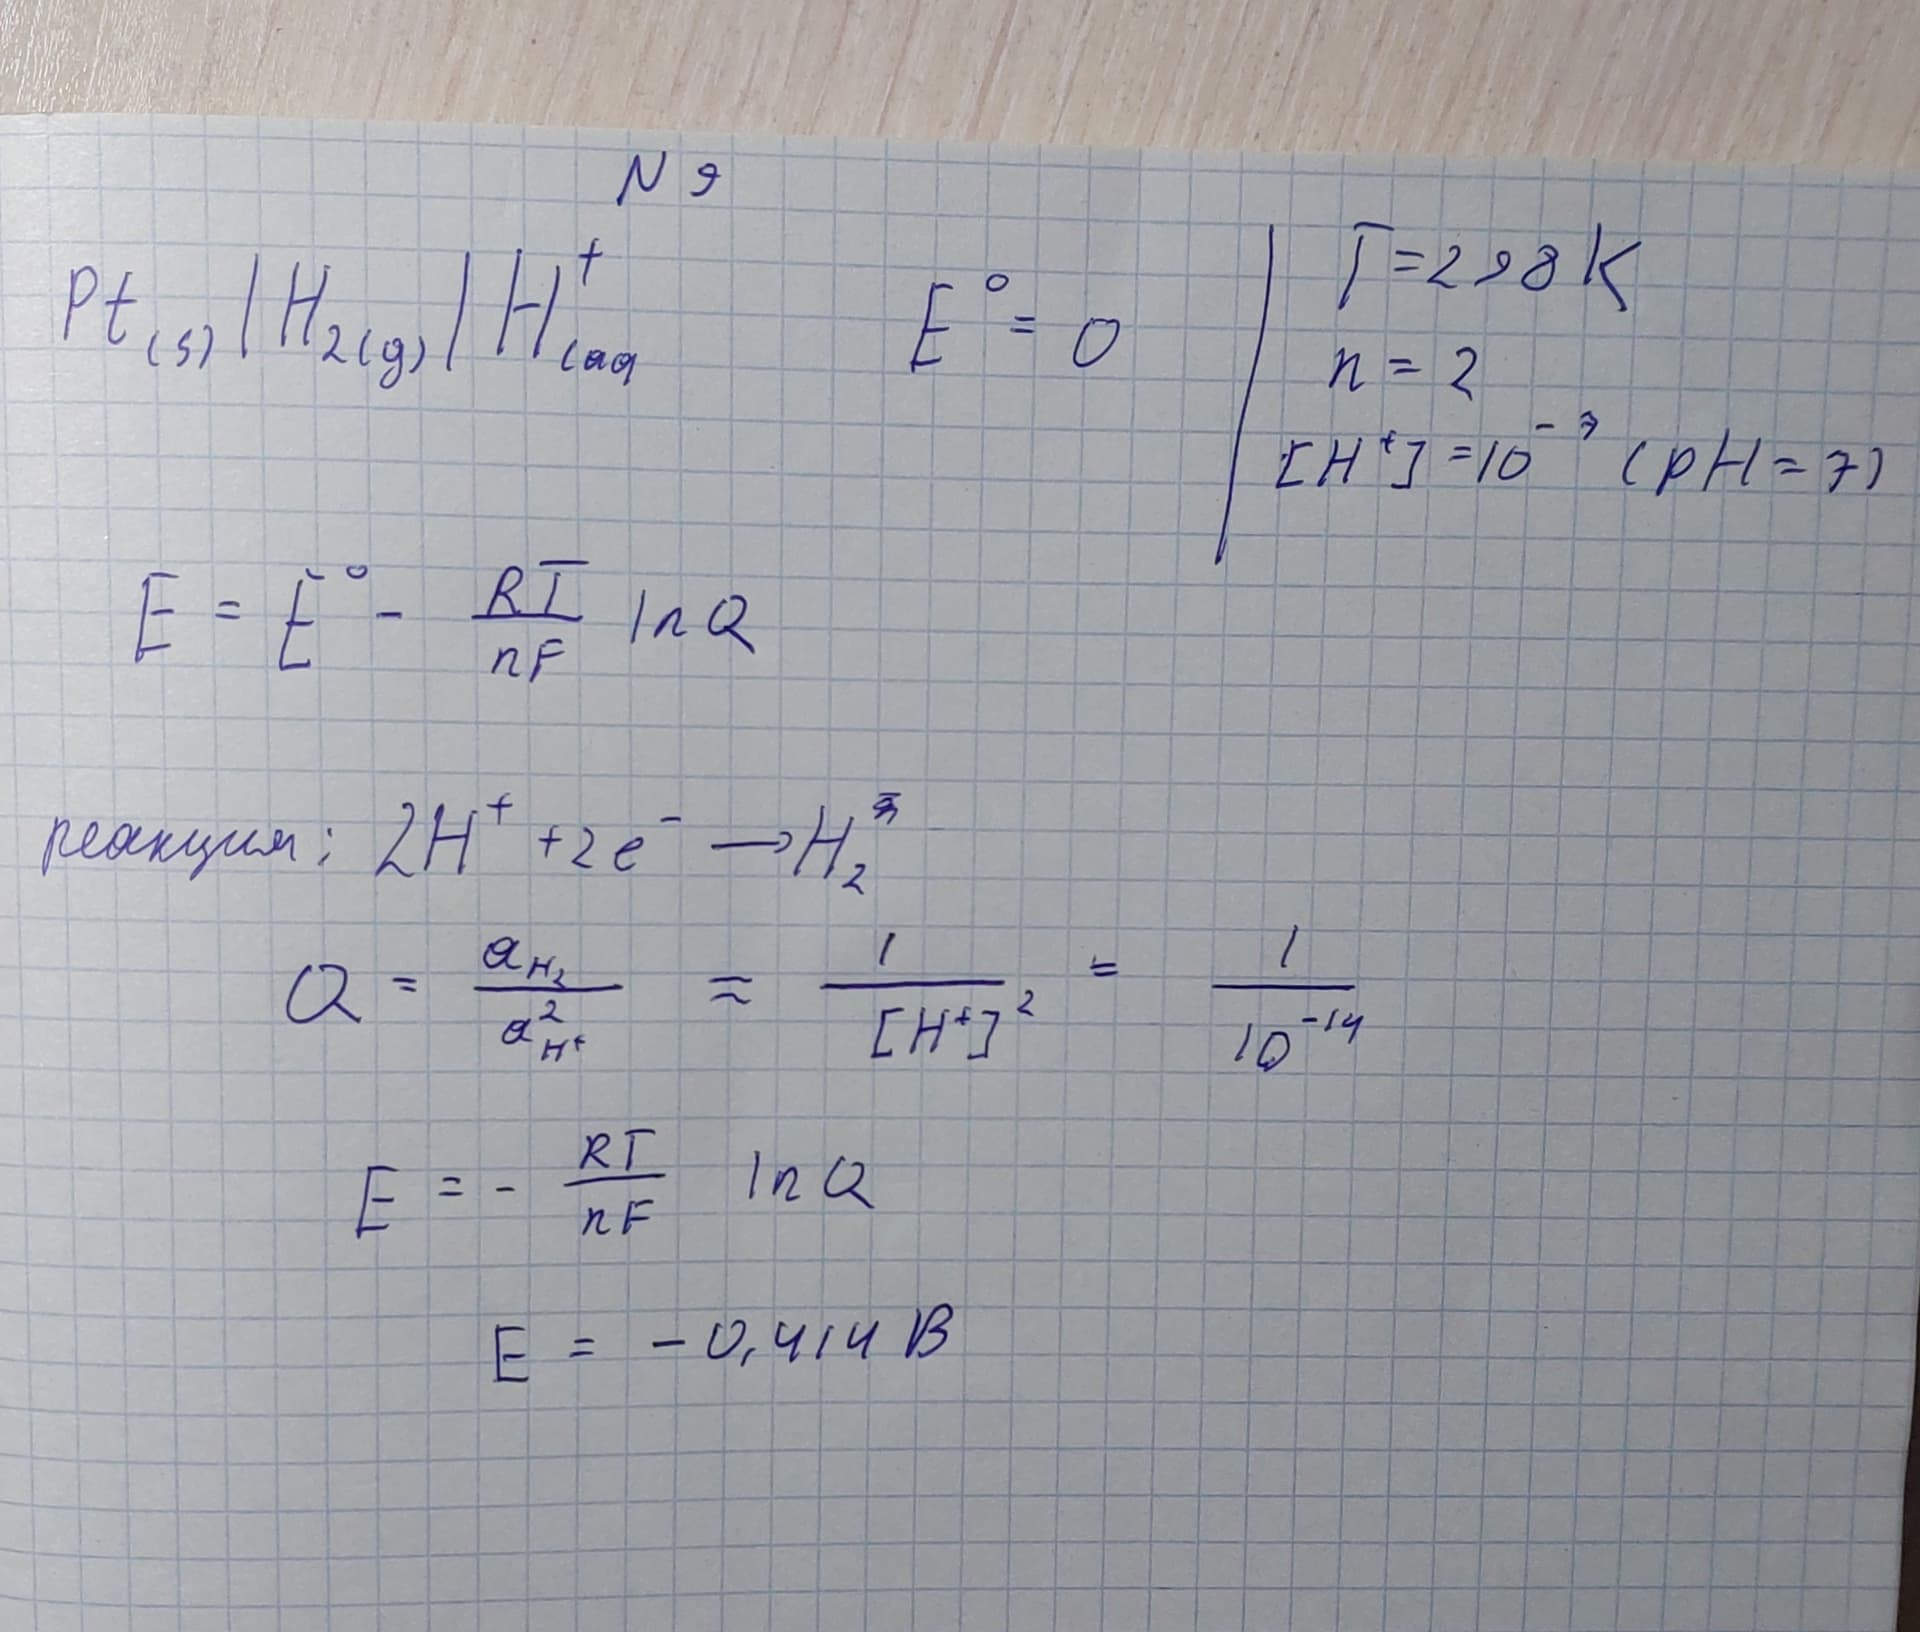 N 9
Pt(s) | H2(g) | H⁺(aq E° = 0
T = 298 K
n = 2
[H⁺] = 10⁻⁷ (pH = 7)
E = E° - RT/nF ln Q
реакция: 2H⁺ + 2e⁻ → H₂
Q = a_H₂ / a²_H⁺ ≈ 1 / [H⁺]² = 1 / 10⁻¹⁴
E = - RT/nF ln Q
E = -0,414 В